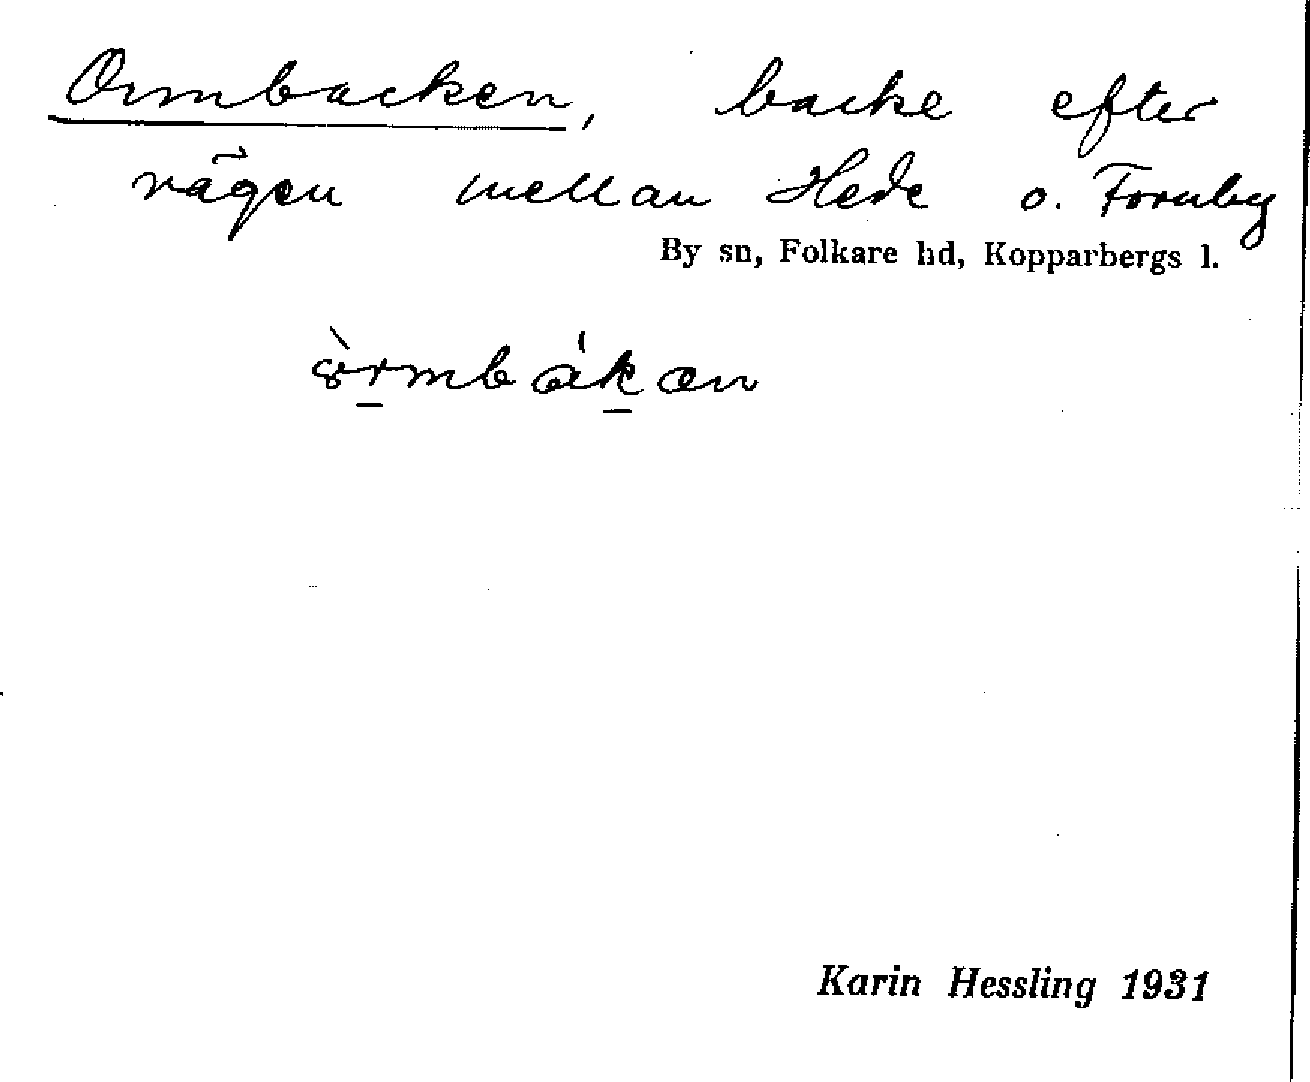 Ormbacken, backe efter
vägen mellan Hede o. Fornby
By sn, Folkare hd, Kopparbergs l.
Karin Hessling 1931